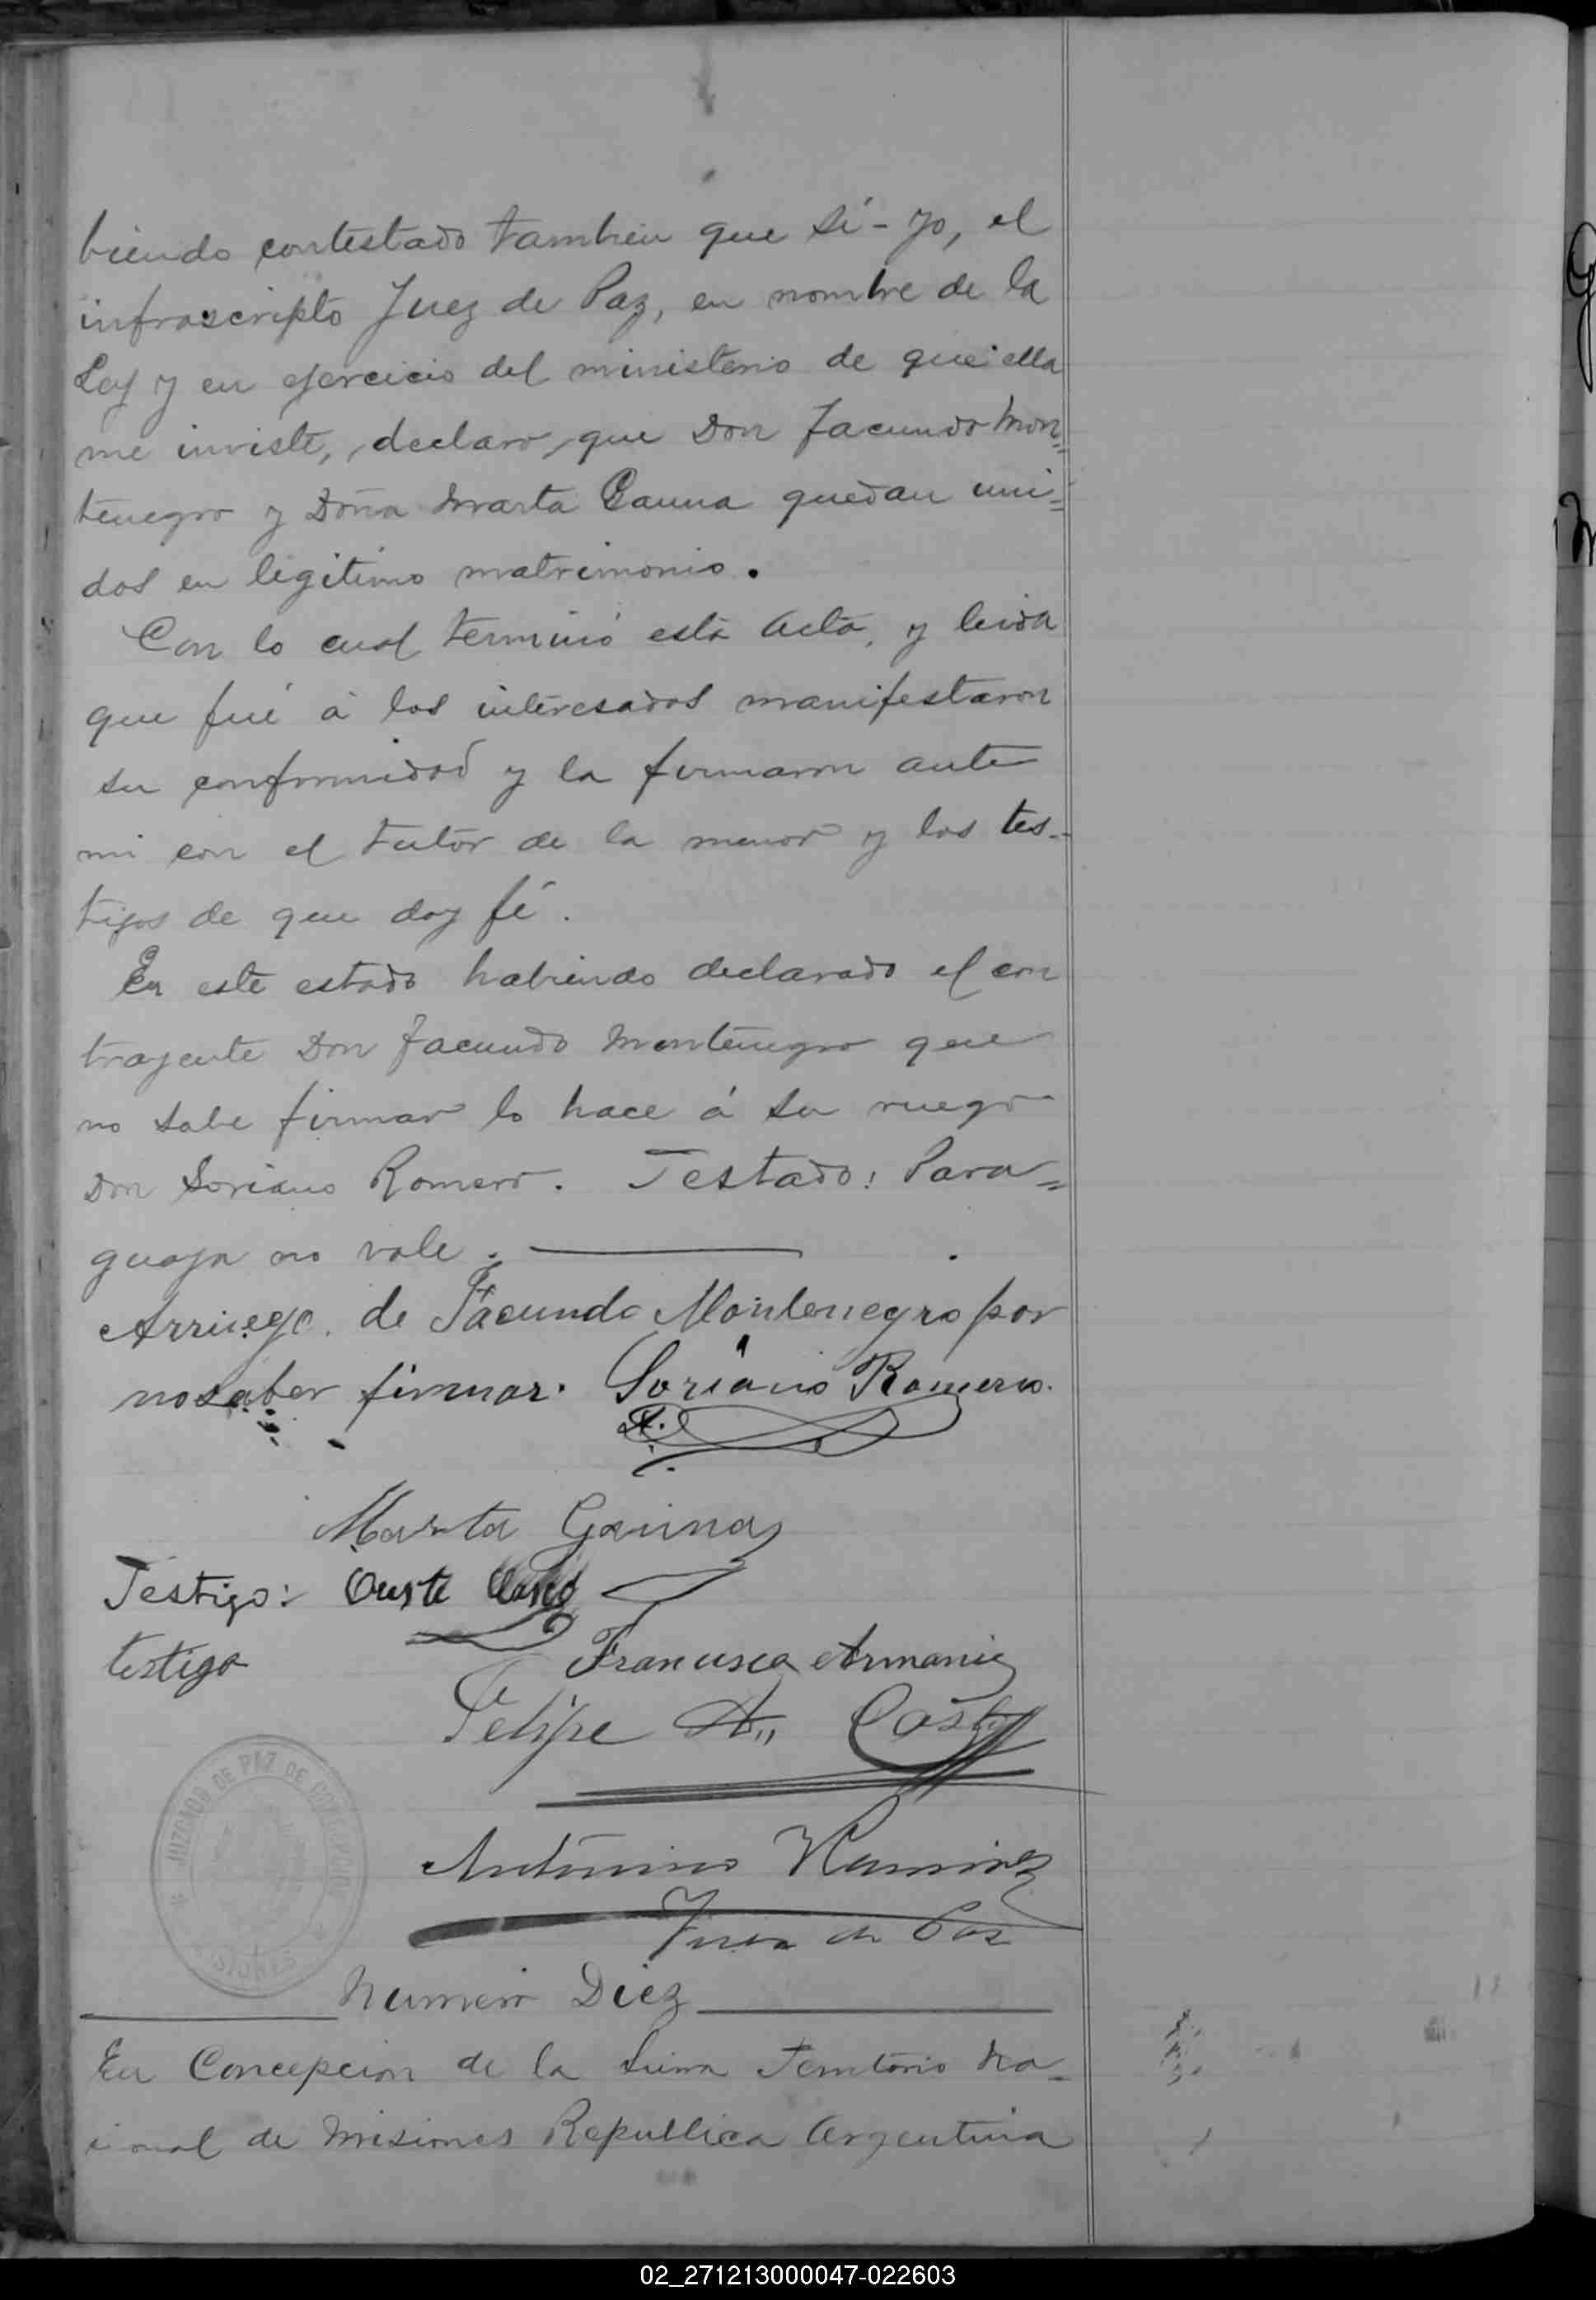 biendo contestado tambien que sí - yo, el
infrascripto Juez de Paz, en nombre de la
Ley y en ejercicio del ministerio de que ella
me inviste, declaro, que Don Facundo Mon=
tenegro y Doña Marta Gauna quedan uni=
dos en legitimo matrimonio.
Con lo cual terminó esta acta, y leida
que fué á los interesados manifestaron
su conformidad y la firmaron ante
mi con el tutor de la menor y los tes-
tigos de que doy fé.
En este estado habiendo declarado el con
trayente Don Facundo Montenegro que
no sabe firmar lo hace á su ruego
Don Soriano Romero. Testado: Para=
guaya no vale.
Arruego de Facundo Montenegro por
no saber firmar. Soriano Romero.
Marta Gauna
Testigo:
testigo Francisca
Felipe A.
JUZGADO DE PAZ DE CONCEPCION
MISIONES
Antonino Ramirez
Juez de Paz
Numero Diez
En Concepcion de la Sierra Territorio Na-
cional de Misiones Republica Argentina
02_271213000047-022603